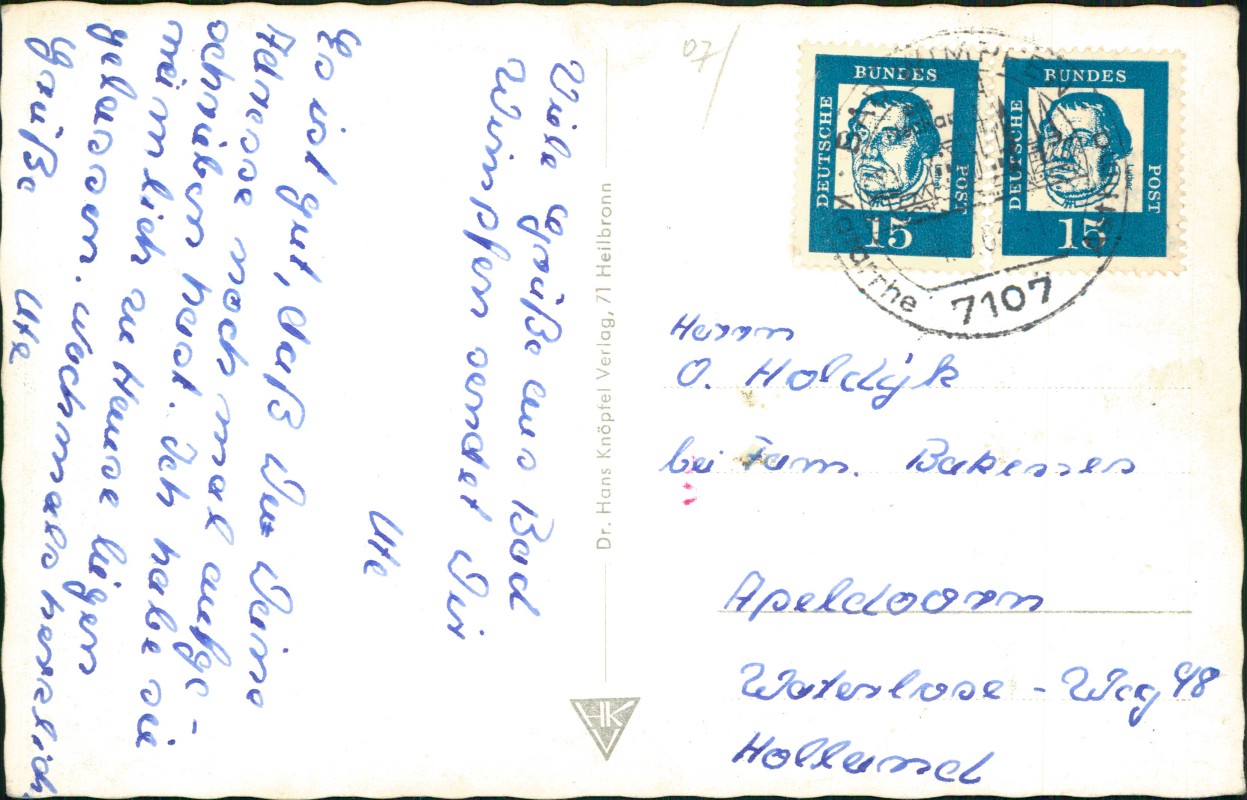 Viele Grüße aus Bad
Wimpfen sendet Dir
Ute
Es ist gut, daß Du Deine
Adresse noch mal aufge-
schrieben hast. Ich habe sie
nämlich zu Hause liegen
gelassen. Nochmals herzlich
Grüße
Ute
Dr. Hans Knöpfel Verlag, 71 Heilbronn
HKV
07/
BUNDES
DEUTSCHE
POST
Luther
15
BUNDES
DEUTSCHE
POST
Luther
15
BAD WIMPFEN
7107
Herrn
O. Holdijk
bei Fam. Bakesses
Apeldoorn
Waterlose - Weg 48
Holland